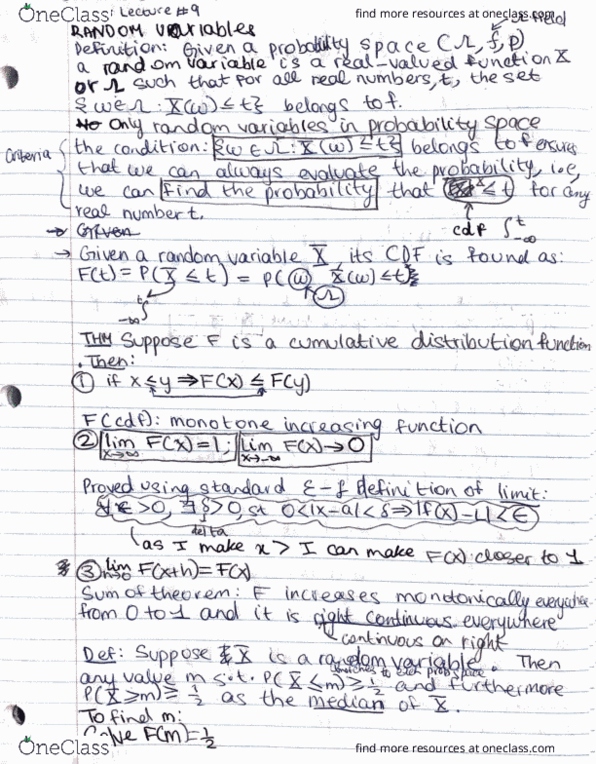 OneClass: Lecture #9
find more resources at oneclass.com
RANDOM VARIABLES
Definition: Given a probability space (Ω, f, P)
a random variable is a real-valued function X
or Ω such that for all real numbers, t, the set
{ω∈Ω : X(ω) ≤ t} belongs to f.
Only random variables in probability space
Criteria
the condition: {ω∈Ω: X(ω) ≤ t} belongs to f ensures
that we can always evaluate the probability, i.e,
we can find the probability that ≤ t for any
real number t.
cdf ∫ t -∞
→ Given
→ Given a random variable X, its CDF is found as:
F(t) = P(X ≤ t) = P(ω X(ω) ≤ t)
t ∫ -∞
Ω
THM Suppose F is a cumulative distribution function
. Then:
① if x ≤ y ⇒ F(x) ≤ F(y)
F(cdf): monotone increasing function
② lim x→∞ F(x) = 1; lim x→-∞ F(x) → 0
Proved using standard ε-δ definition of limit:
∀ε>0, ∃δ>0, st 0<|x-a|<δ ⇒ |f(x)-L|<ε
delta
as I make x > I can make F(x) closer to 1
③ lim h→0 F(x+h) = F(x)
Sum of theorem: F increases mondonically everywhere
from 0 to 1 and it is right continuous everywhere
continuous on right
Def: Suppose X is a random variable. Then
any value m s.t. P(X ≤ m) ≥ 1/2 and furthermore
P(X ≥ m) ≥ 1/2 as the median of X.
To find m:
Solve F(m) = 1/2
OneClass
find more resources at oneclass.com